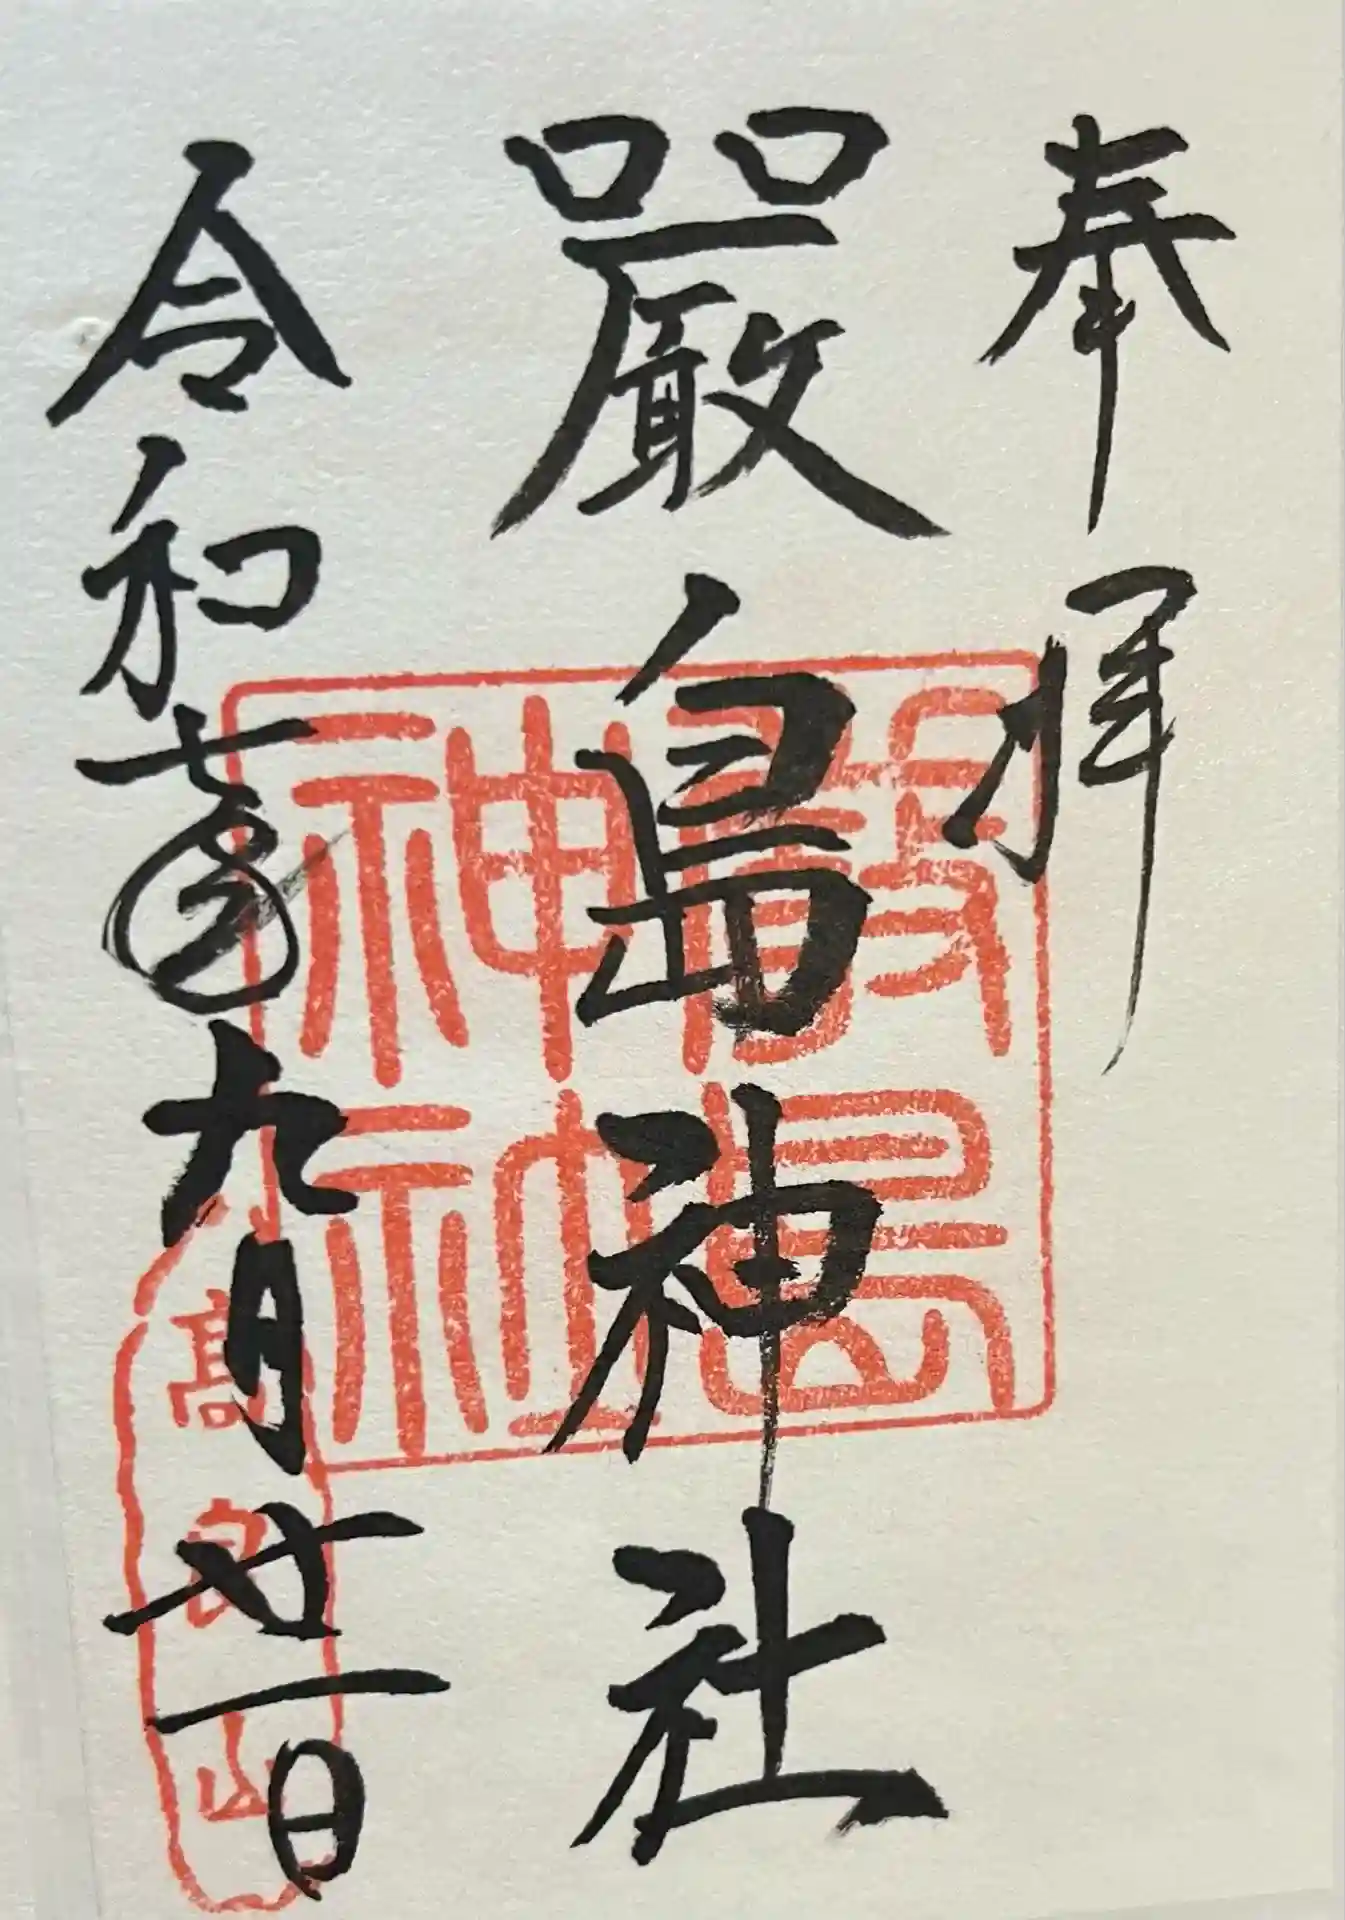 奉拝
嚴島神社
令和七年九月廿一日
嚴島神社
高良山